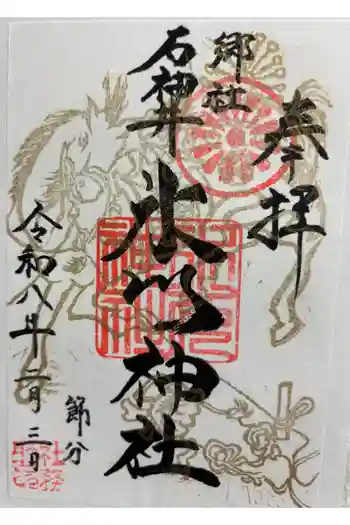 奉拝
郷社
石神井
氷川神社
令和八年二月三日
節分